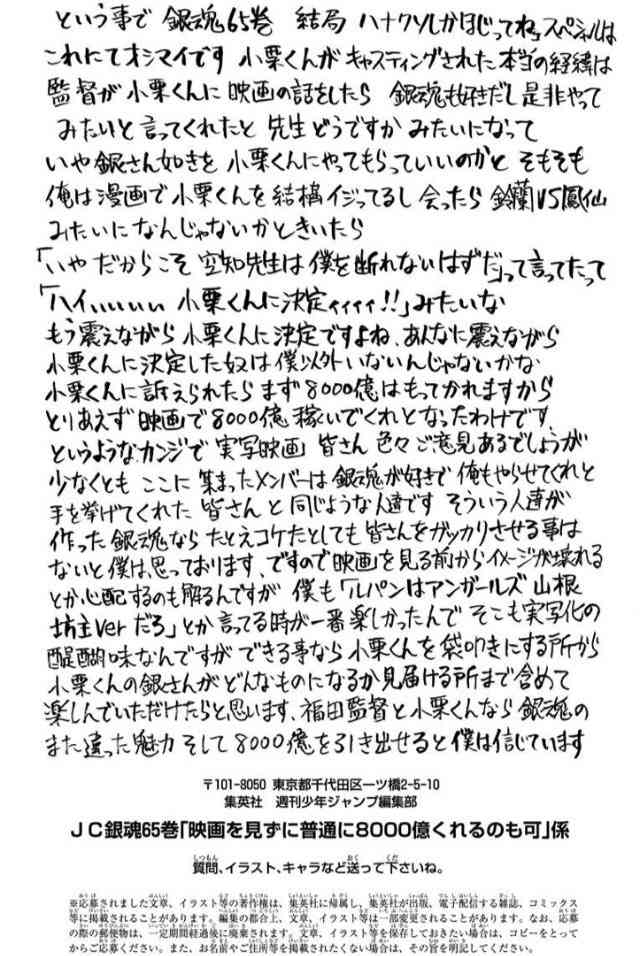 という事で 銀魂65巻 結局 ハナクソしかほじってねスペシャルは
これにてオシマイです 小栗くんが キャスティングされた 本当の経緯は
監督が 小栗くんに 映画の話をしたら 銀魂も好きだし 是非やって
みたいと 言ってくれたと 先生 どうですか みたいになって
いや 銀さん如きを 小栗くんに やってもらっていいのかと そもそも
俺は漫画で 小栗くんを 結構 イジってるし 会ったら 鈴蘭VS鳳仙
みたいに なんじゃないかときいたら
「いや だからこそ 空知先生は 僕を断れないはずだ」って言ってたって
「ハイぃぃぃぃぃ 小栗くんに決定ィィィィ!!」みたいな
もう震えながら 小栗くんに決定ですよね、あんなに震えながら
小栗くんに決定した奴は 僕以外いないんじゃないかな
小栗くんに訴えられたら まず 8000億はもってかれますから
とりあえず 映画で 8000億 稼いでくれとなったわけです、
というようなカンジで 実写映画 皆さん 色々 ご意見あるでしょうが
少なくとも ここに 集まったメンバーは 銀魂が好きで 俺もやらせてくれと
手を挙げてくれた 皆さん と 同じような人達です そういう人達が
作った 銀魂なら たとえコケたとしても 皆さんをガッカリさせる事は
ないと 僕は思っております、ですので 映画を見る前からイメージが壊れる
とか心配するのも解るんですが 僕も「ルパンはアンガールズ 山根
坊主verだろ」とか言ってる時が一番 楽しかったんで そこも実写化の
醍醐味なんですが できる事なら 小栗くんを 袋叩きにする所から
小栗くんの銀さんが どんなものになるか 見届ける所まで含めて
楽しんでいただけたらと思います、福田監督と小栗くんなら 銀魂の
また違った魅力 そして 8000億を引き出せると 僕は信じています
〒101-8050 東京都千代田区一ツ橋2-5-10
集英社 週刊少年ジャンプ編集部
JC銀魂65巻「映画を見ずに普通に8000億くれるのも可」係
質問、イラスト、キャラなど送って下さいね。
※応募されました文章、イラスト等の著作権は、集英社に帰属し、集英社が出版、電子配信する雑誌、コミックス
等に掲載されることがあります。編集の都合上、文章、イラスト等は一部変更されることがあります。なお、応募
の際の郵便物は、一定期間経過後に廃棄されます。文章、イラスト等を保存しておきたい場合は、コピーをとって
からご応募ください。また、お名前やご住所等を掲載されたくない場合は、その旨を明記してください。